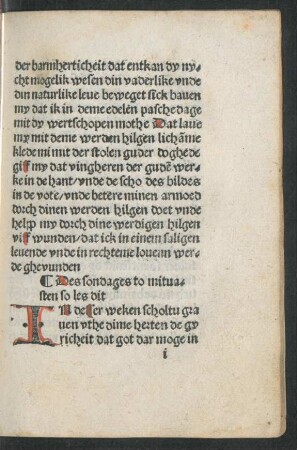 der barmherticheit dat entkan dy ny-
cht mogelik wesen din vaderlike vnde
din naturlike leue beweget sick bauen
my dat ik in deme edelen paschedage
mit dy wertschopen mothe Dat laue
my mit deme werden hilgen lichāme
klede mi mit der stolen guder doghede
giff my dat vingheren der gudē wer-
ke in de hant/vnde de scho des bildes
in de vote/vnde betere minen armoed
dorch dinen werden hilgen doet vnde
help my dorch dine werdigen hilgen
viff wunden/dat ick in einem saligen
leuende vnde in rechteme louenn wer-
de gheuunden
¶ Des sondages to mitua-
sten so les dit
IN desser weken scholtu gra
uen vthe dime herten de gy
richeit dat got dar moge in
i